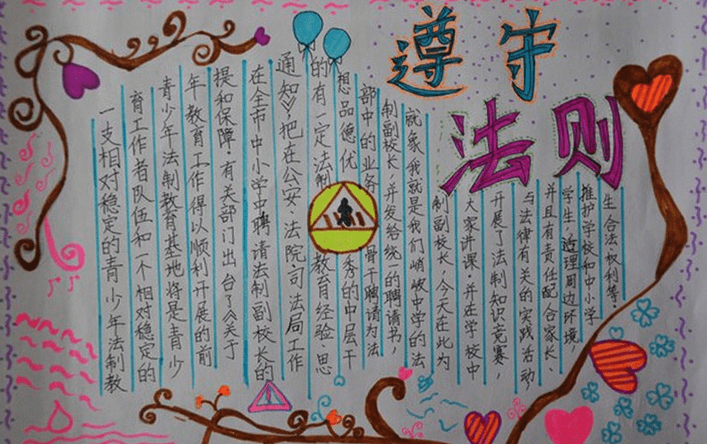 遵守
法则
生合法权利等
推护学校和中小学
学生,治理周边环境,
并且有责任配合家长、
与法律有关的实践活动
开展了法制知识竞赛,
大家讲课,并在学校中
制副校长,今天在此为
就象我就是我们峭岐中学的法
制副校长,并发给统的聘请书,
部中的业务骨干聘请为法
想品德优秀的中层干
的有一定法制教育经验、思
通知》,把在公安、法院司法局工作
在全市中小学中聘请法制副校长的
提和保障,有关部门出台了《关于
年教育工作得以顺利开展的前
青少年法制教育基地将是青少
育工作者队伍和一个相对稳定的
一支相对稳定的青少年法制教